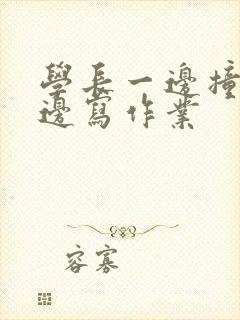 學長一邊撞
邊寫作業
容寡